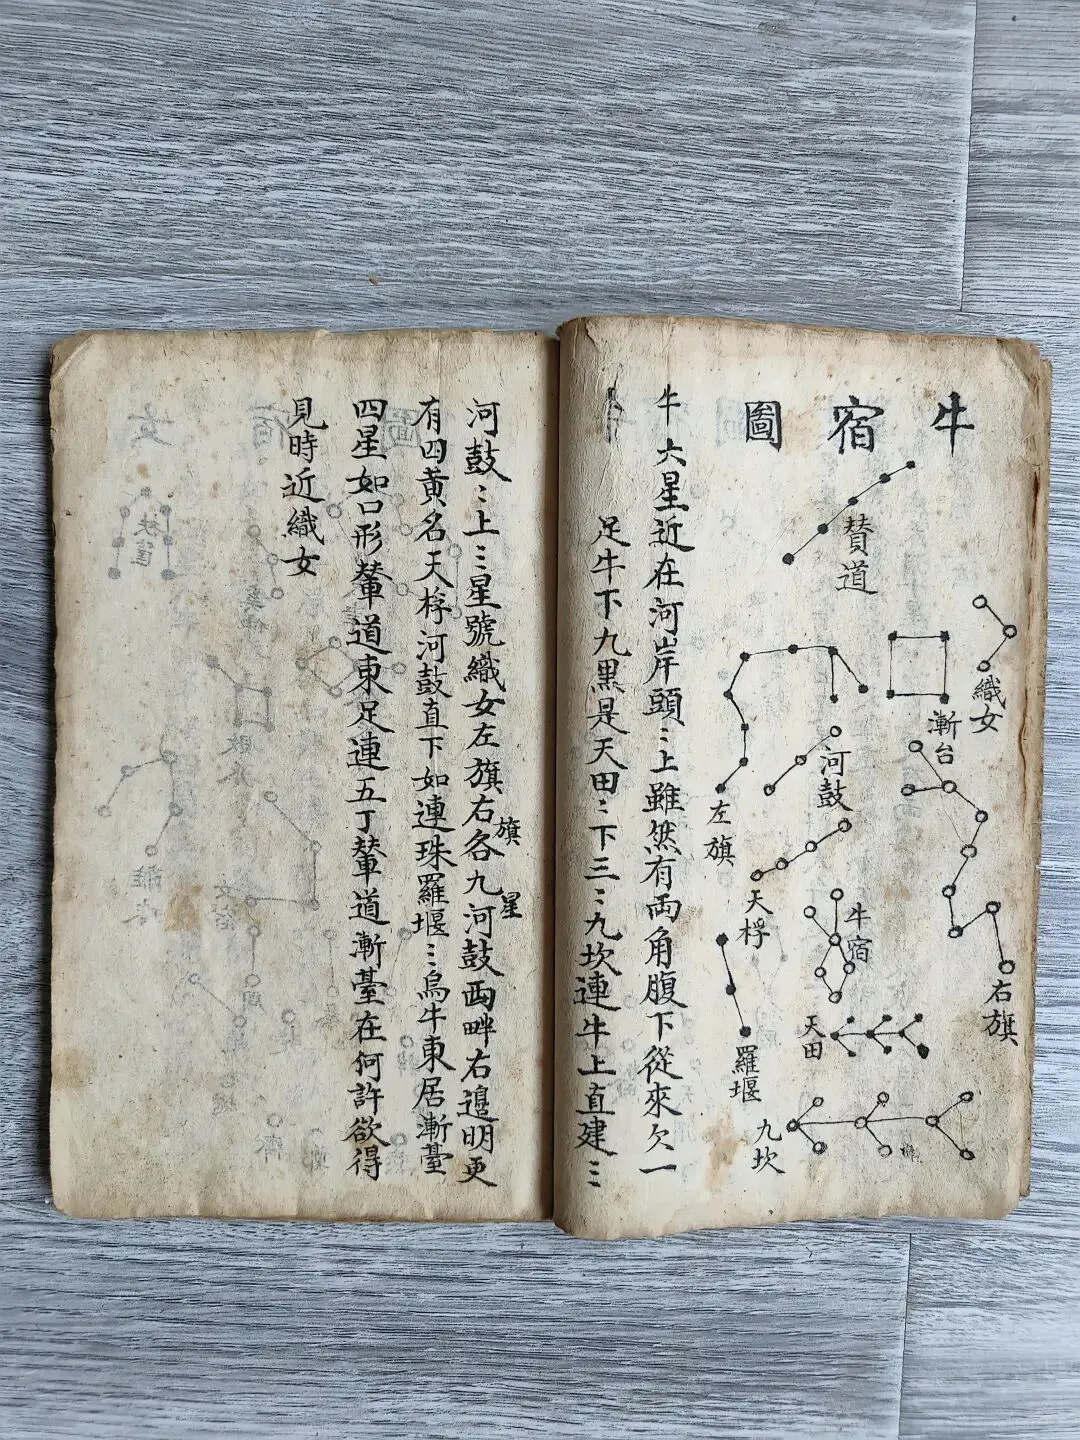 牛宿圖
贊道
織女
漸台
河鼓
左旗
天桴
牛宿
右旗
天田
羅堰
九坎
牛 六星近在河岸頭〻上雖然有両角腹下從來欠一
足牛下九黒是天田〻下三〻九坎連牛上直建三
河鼓〻上三星號織女左旗右各九河鼓両畔右邉明更
旗
星
有四黄名天桴河鼓直下如連珠羅堰三烏牛東居漸臺
四星如口形輦道東足連五丁輦道漸臺在何許欲得
見時近織女